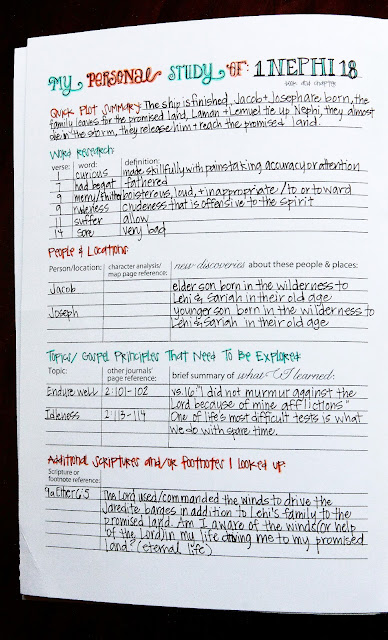 MY PERSONAL STUDY OF: 1 NEPHI 18
book and chapter
Quick Plot Summary: The ship is finished, Jacob + Joseph are born, the
family leaves for the promised land, Laman + Lemuel tie up Nephi, they almost
die in the storm, they release him + reach the promised land.
Word Research:
verse: word: definition:
1 curious made skillfully with painstaking accuracy or attention
7 had begat fathered
9 merry/thither boisterous, loud, + inappropriate / to or toward
9 rudeness crudeness that is offensive to the spirit
11 suffer allow
14 sore very bad
People & Locations:
Person/location: character analysis/ map page reference: new discoveries about these people & places:
Jacob elder son born in the wilderness to
Lehi & Sariah in their old age
Joseph younger son born in the wilderness to
Lehi & Sariah in their old age
Topics/ Gospel Principles That Need To Be Explored
Topic: other journals' page reference: brief summary of what I learned:
Endure well 2:101-102 vs. 16: "I did not murmur against the
Lord because of mine afflictions"
Idleness 2:113-114 One of life's most difficult tests is what
we do with spare time.
Additional Scriptures and/or footnotes I looked up:
Scripture or footnote reference:
9a Ether 6:5 The Lord used/commanded the winds to drive the
Jaredite barges in addition to Lehi's family to the
promised land. Am I aware of the winds (or help
of the Lord) in my life driving me to my promised
land? (eternal life)